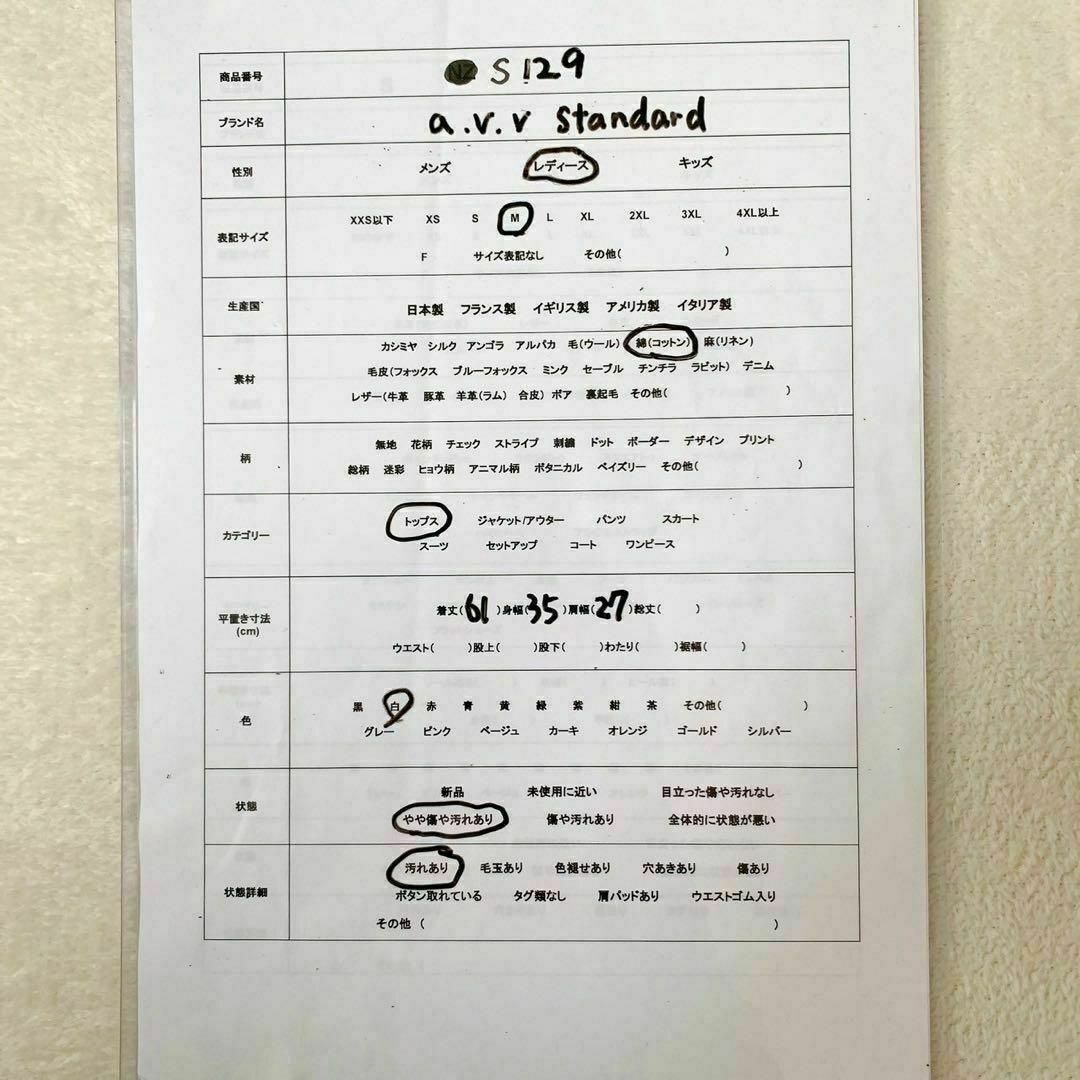 商品番号 NZ S129
ブランド名 a.v.v standard
性別 メンズ レディース キッズ
XXS以下 XS S M L XL 2XL 3XL 4XL以上
表記サイズ
F サイズ表記なし その他( )
生産国 日本製 フランス製 イギリス製 アメリカ製 イタリア製
カシミヤ シルク アンゴラ アルパカ 毛(ウール) 綿(コットン) 麻(リネン)
毛皮(フォックス ブルーフォックス ミンク セーブル チンチラ ラビット) デニム
素材
レザー(牛革 豚革 羊革(ラム) 合皮) ボア 裏起毛 その他( )
無地 花柄 チェック ストライプ 刺繍 ドット ボーダー デザイン プリント
柄
総柄 迷彩 ヒョウ柄 アニマル柄 ボタニカル ペイズリー その他( )
トップス ジャケット/アウター パンツ スカート
カテゴリー
スーツ セットアップ コート ワンピース
着丈(61)身幅(35)肩幅(27)総丈( )
平置き寸法
(cm)
ウエスト( )股上( )股下( )わたり( )裾幅( )
黒 白 赤 青 黄 緑 紫 紺 茶 その他( )
色
グレー ピンク ベージュ カーキ オレンジ ゴールド シルバー
新品 未使用に近い 目立った傷や汚れなし
状態
やや傷や汚れあり 傷や汚れあり 全体的に状態が悪い
汚れあり 毛玉あり 色褪せあり 穴あきあり 傷あり
状態詳細 ボタン取れている タグ類なし 肩パッドあり ウエストゴム入り
その他 ( )